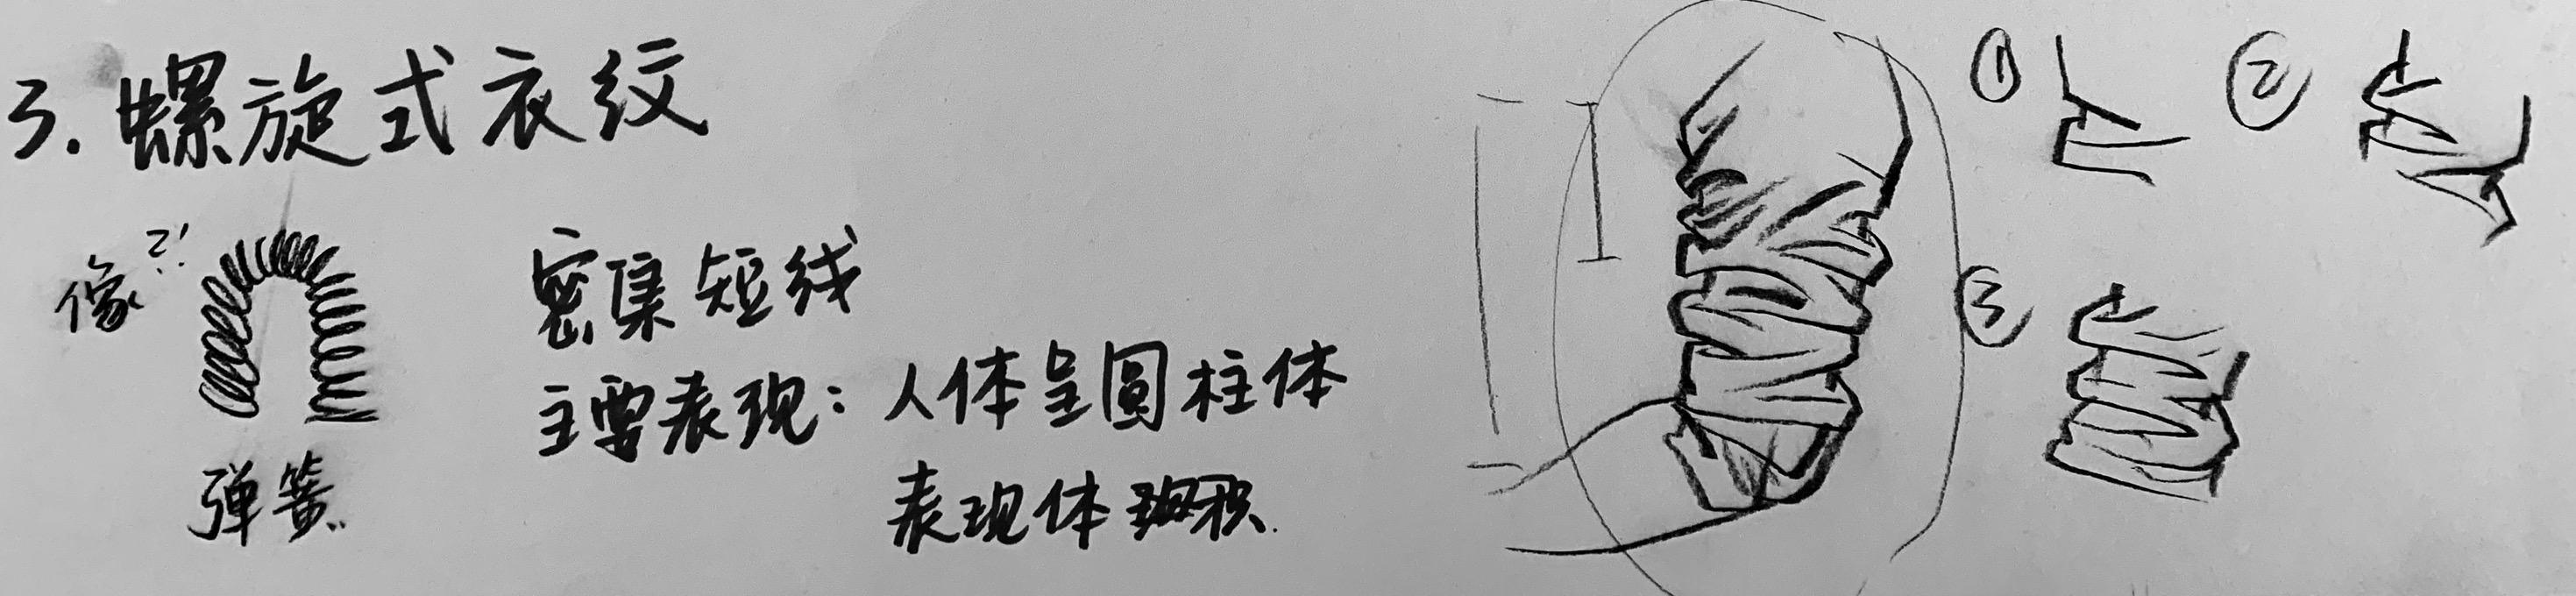 3. 螺旋式衣纹
像?!
弹簧
密集短线
主要表现：人体呈圆柱体
表现体积.
①
②
③